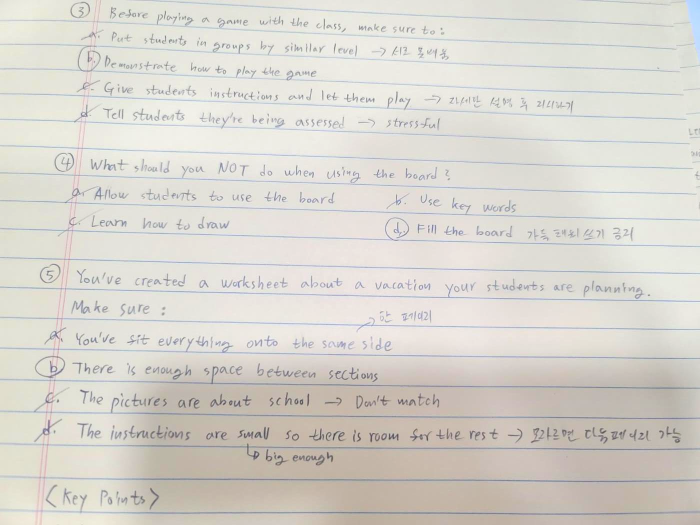 ③ Before playing a game with the class, make sure to:
a. Put students in groups by similar level → 서로 못배움
ⓑ Demonstrate how to play the game
c. Give students instructions and let them play → 자세한 설명 후
d. Tell students they're being assessed → stressful
④ What should you NOT do when using the board?
a. Allow students to use the board b. Use key words
c. Learn how to draw ⓓ Fill the board 가득 쓰기 금지
⑤ You've created a worksheet about a vacation your students are planning.
Make sure :
→ 한 페이지
a. You've fit everything onto the same side
ⓑ There is enough space between sections
c. The pictures are about school → Don't match
d. The instructions are small so there is room for the rest → 모자르면 다음페이지 가능
↳ big enough
<Key Points>